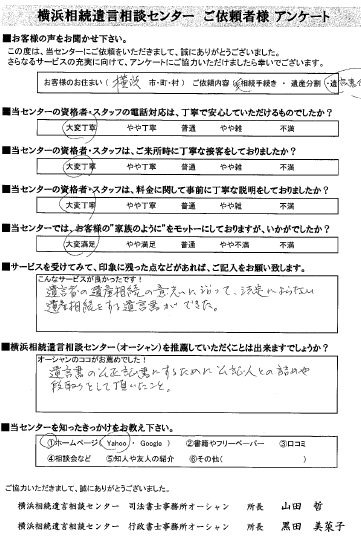 横浜相続遺言相談センター ご依頼者様 アンケート
■お客様の声をお聞かせ下さい。
この度は、当センターにご依頼をいただきまして、誠にありがとうございました。
さらなるサービスの充実に向けて、アンケートにご協力いただけましたら幸いでございます。
お客様のお住まい( 横浜 市・町・村 ) ご依頼内容( 相続手続き ・ 遺産分割 ・遺言書
■当センターの資格者・スタッフの電話対応は、丁寧で安心していただけるものでしたか?
大変丁寧 やや丁寧 普通 やや雑 不満
■当センターの資格者・スタッフは、ご来所時に丁寧な接客をしておりましたか?
大変丁寧 やや丁寧 普通 やや雑 不満
■当センターの資格者・スタッフは、料金に関して事前に丁寧な説明をしておりましたか?
大変丁寧 やや丁寧 普通 やや雑 不満
■当センターでは、お客様の"家族のように"をモットーにしておりますが、いかがでしたか?
大変満足 やや満足 普通 やや不満 不満
■サービスを受けてみて、印象に残った点などがあれば、ご記入をお願い致します。
こんなサービスが良かったです!
遺言者の遺産相続の意思に沿って、法定によらない
遺産相続とする遺言書ができた。
■横浜相続遺言相談センター(オーシャン)を推薦していただくことは出来ますでしょうか?
オーシャンのココがお薦めでした!
遺言書の公正証書にするために公証人との詰めや
段取りをして頂いたこと。
■当センターを知ったきっかけをお教え下さい。
①ホームページ( Yahoo ・ Google ) ②書籍やフリーペーパー ③口コミ
④相談会など ⑤知人や友人の紹介 ⑥その他( )
ご協力いただきまして、誠にありがとうございました。
横浜相続遺言相談センター 司法書士事務所オーシャン 所長 山田 哲
横浜相続遺言相談センター 行政書士事務所オーシャン 所長 黒田 美菜子